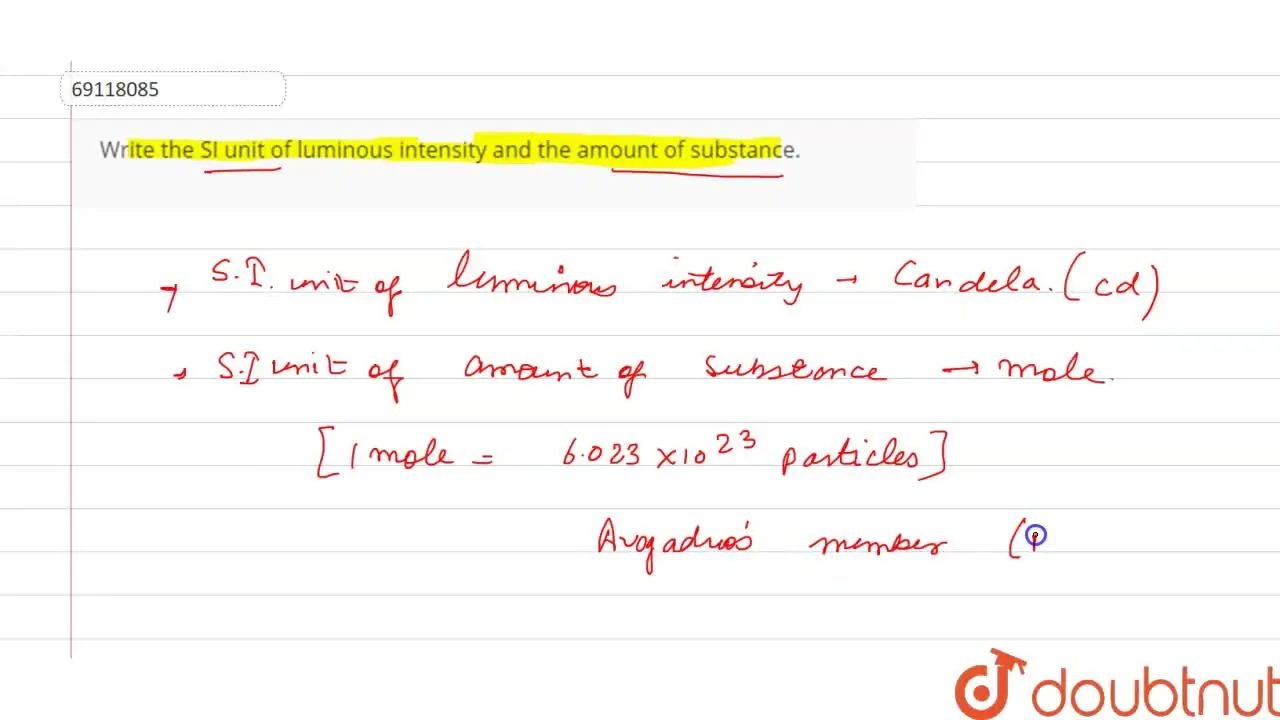 69118085
Write the SI unit of luminous intensity and the amount of substance.
S.I. unit of luminous intensity → Candela. (cd)
S.I unit of amount of substance → mole.
[1 mole = 6.023 × 10²³ particles]
Avogadro's member (
doubtnut